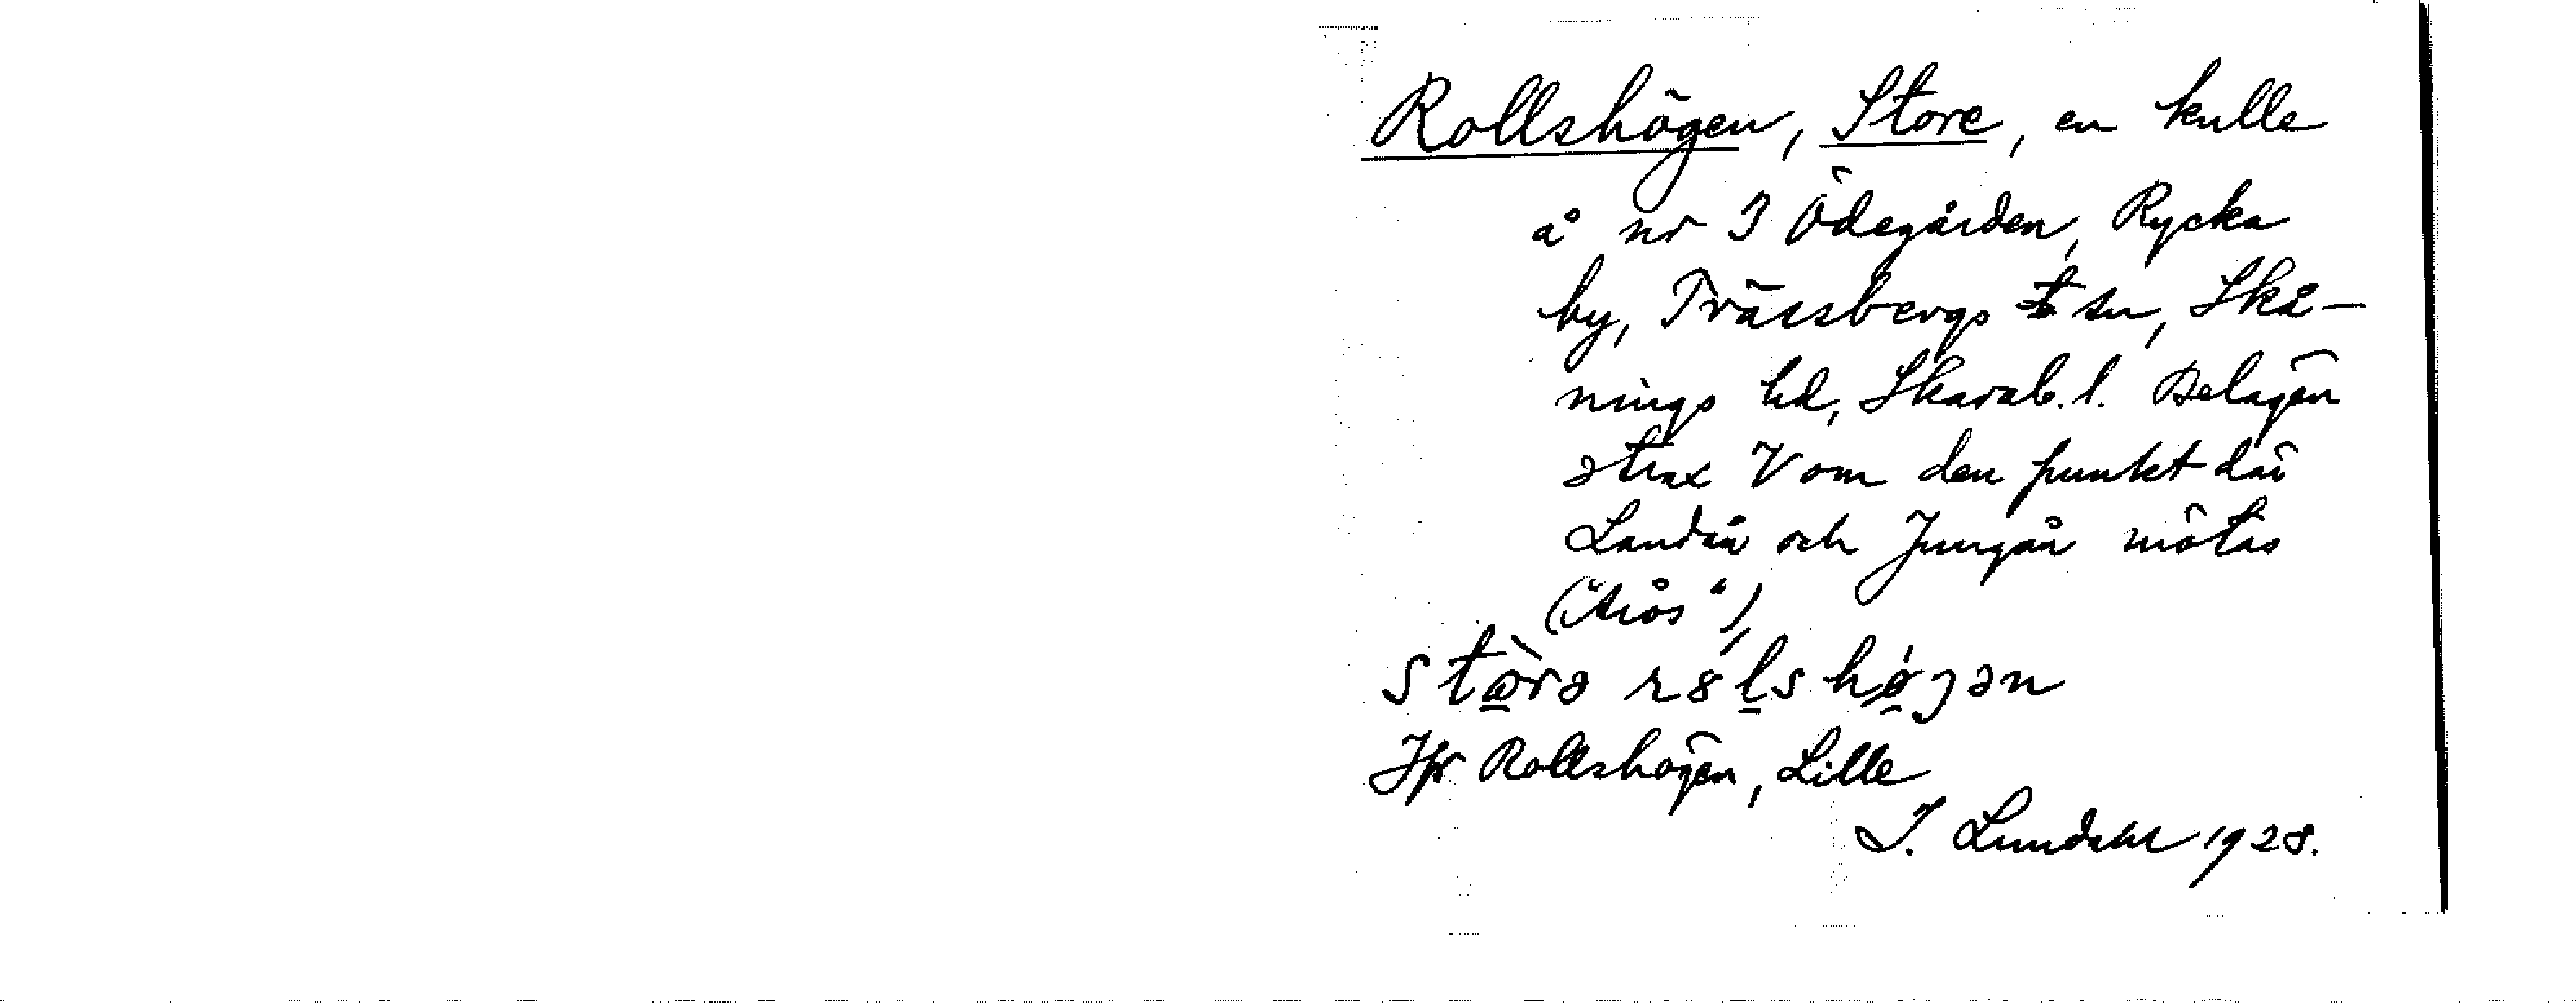 Rollshögen, Store, en kulle
å nr 3 Ödegården, Rycka
by, Trässbergs sn, Skå-
nings hd, Skarab. l. Belägen
strax V om den punkt där
Landån och Jungån mötas
Jfr Rollshögen, Lille
I. Lundahl 1928.